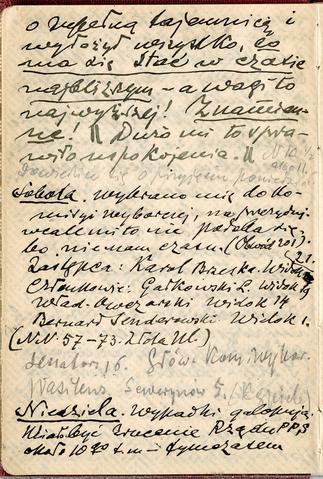 o zupełną tajemnicę i
wyłożył wszystko, co
ma się stać w czasie
najbliższym – a wagi to
najwyższej! Znamien-
ne! || Dużo mi to spra-
wiło uspokojenia. ||
Dowiedzieć się o
Sobota. Wybrano mię do Ko-
misyi wyborczej,
wcale mi to nie podoba się,
bo nie mam czasu. (Obwód 201).
Zastępca: Karol Brzeska. Widok 21.
Członkowie: Gałkowski L. Widok 19
Wład. Owczarski Widok 14
Bernard Senderowski Widok 1.
(NN. 57–73. Złota Ul.)
Senator. 16. Głów. Kom. Wybor.
Wasilews Sewerynów 5.
Niedziela. Wypadki galopują.
Miało być zrzucenie Rządu PPS
około 10 20 r.m – tymczasem